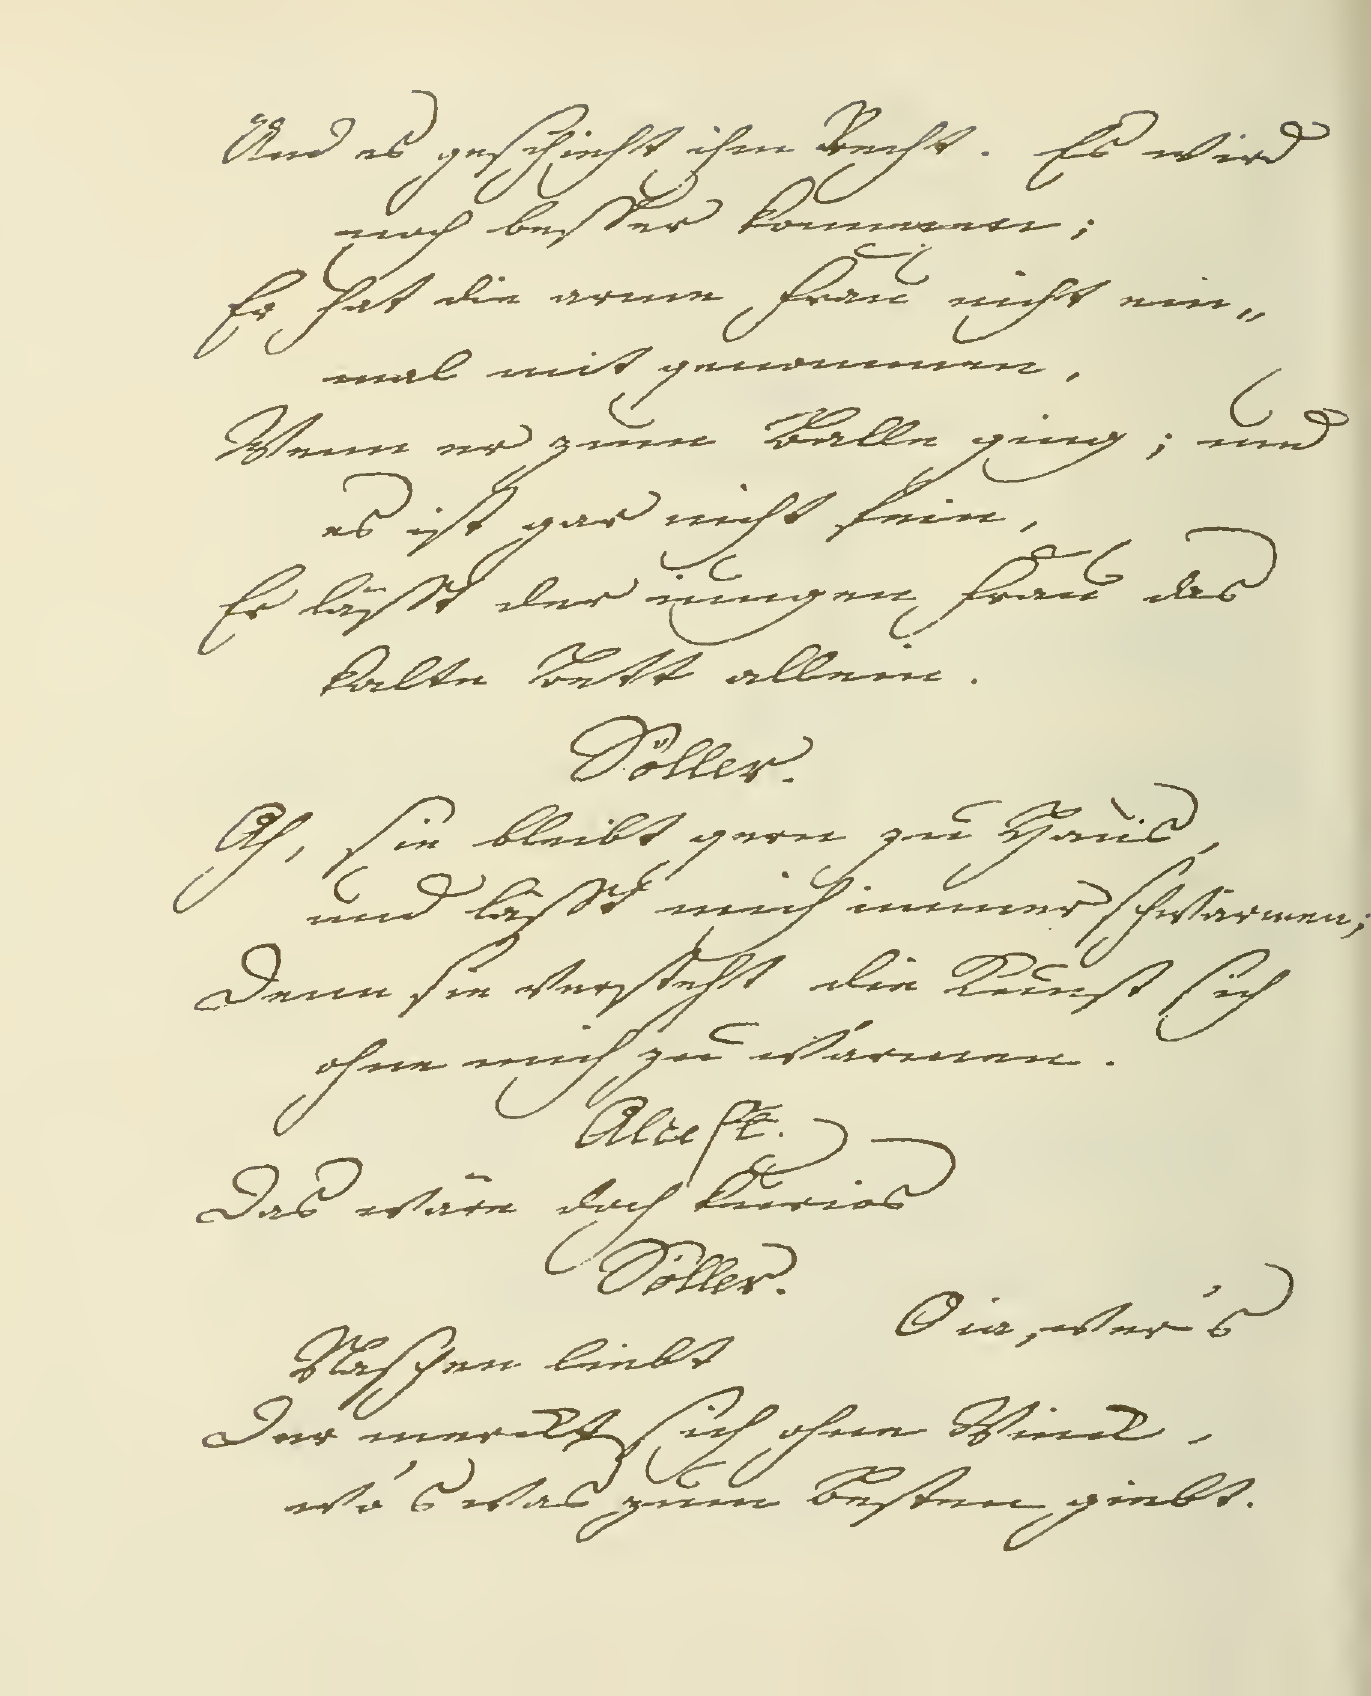 Und es geschieht ihm Recht. Es wird
noch besser kommen;
Er hat die arme Frau nicht ein„
mal mit genommen,
Wenn er zum Balle ging; und
es ist gar nicht fein,
Er lässt der iungen Frau das
kalte Bett allein.
Söller.
Ah, sie bleibt gern zu Haus,
und lässt mich immer schwärmen;
Denn sie versteht die Kunst sich
ohne mich zu wärmen.
Alcest.
Das wäre doch kurios
Söller.
O ia, wer's
Naschen liebt
Der merckt sich ohne Winck,
wo's was zum Besten giebt.